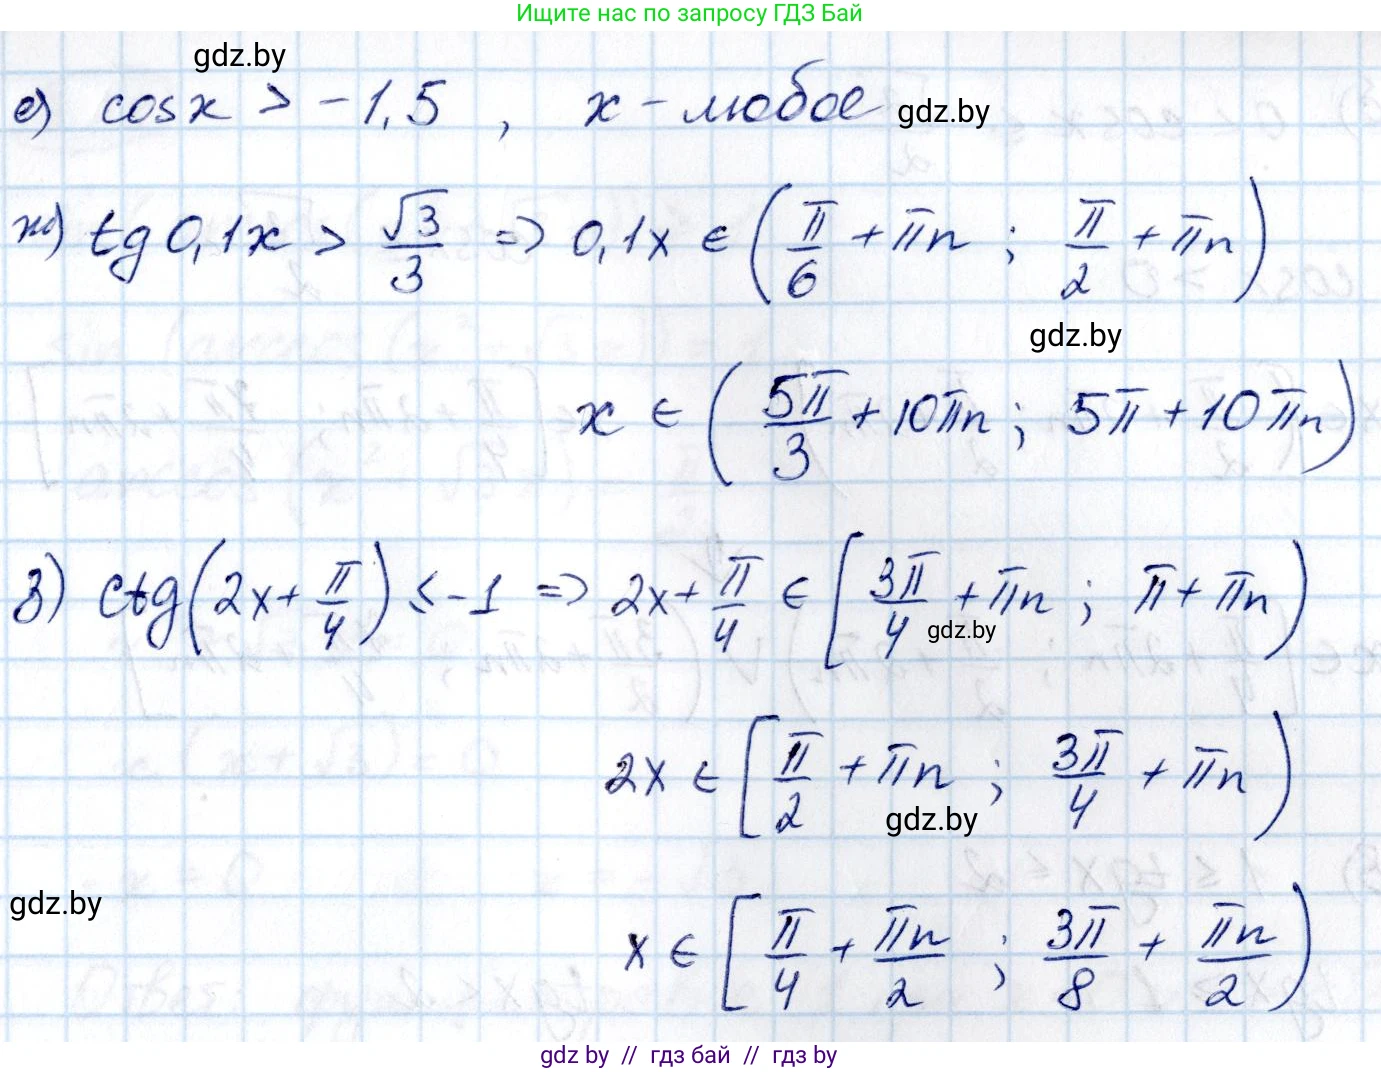 Ищите нас по запросу ГДЗ Бай
gdz.by
е) cosx > -1,5 , x - любое gdz.by
ж) tg 0,1x > √3/3 => 0,1x ∈ (π/6 + πn ; π/2 + πn)
gdz.by
x ∈ (5π/3 + 10πn ; 5π + 10πn)
з) ctg(2x + π/4) ≤ -1 => 2x + π/4 ∈ [3π/4 + πn ; π + πn)
gdz.by
2x ∈ [π/2 + πn ; 3π/4 + πn)
gdz.by
gdz.by
x ∈ [π/4 + πn/2 ; 3π/8 + πn/2)
gdz by // гдз бай // гдз by